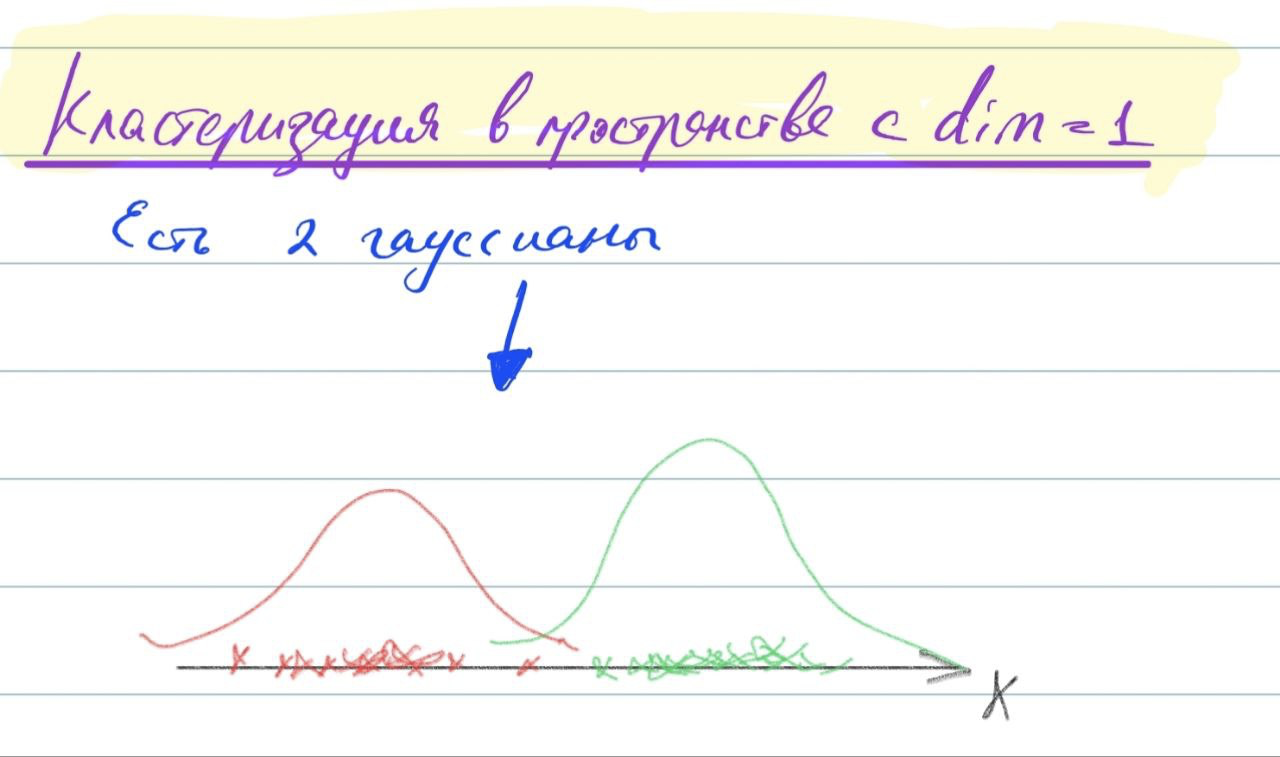 Кластеризация в пространстве с dim = 1
Есть 2 гауссианы
X